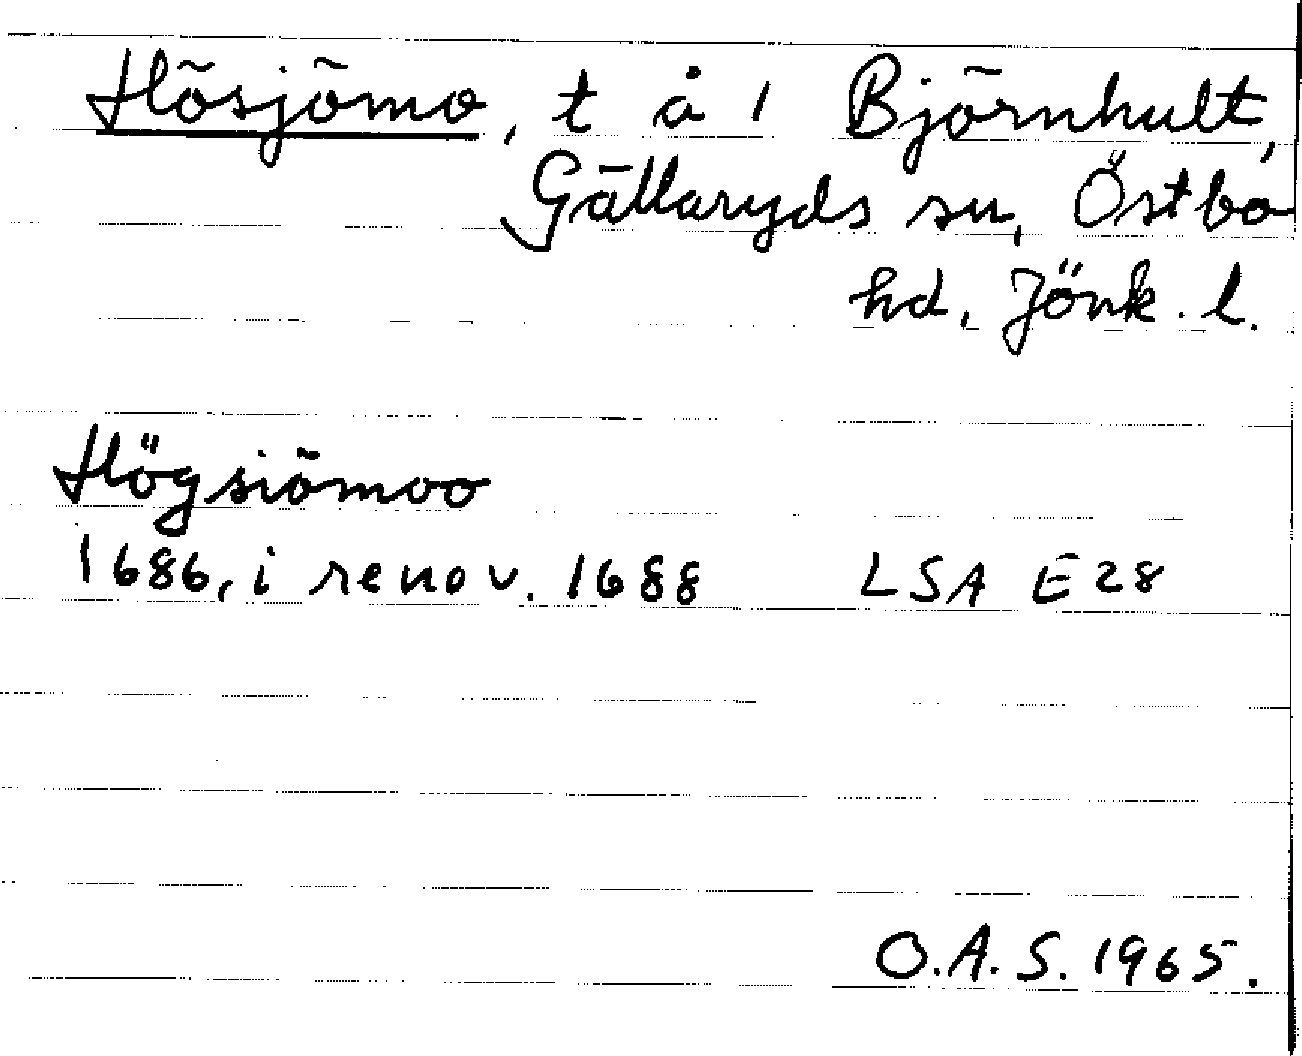 Hösjömo, t å 1 Björnhult,
Gällaryds sn, Östbo
hd, Jönk. l.
Högsiömoo
1686, i renov. 1688 LSA E28
O.A.S. 1965.